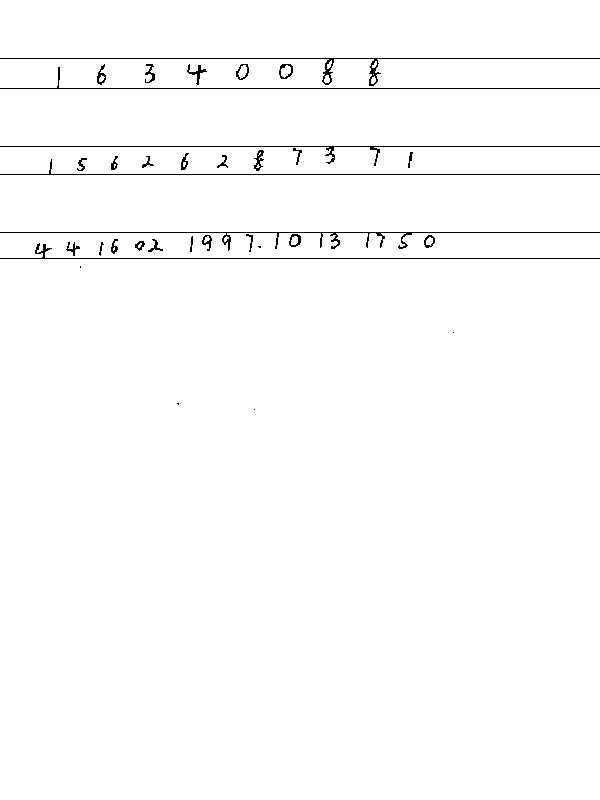 1 6 3 4 0 0 8 8
1 5 6 2 6 2 8 7 3 7 1
4 4 16 02 1997. 10 13 17 5 0